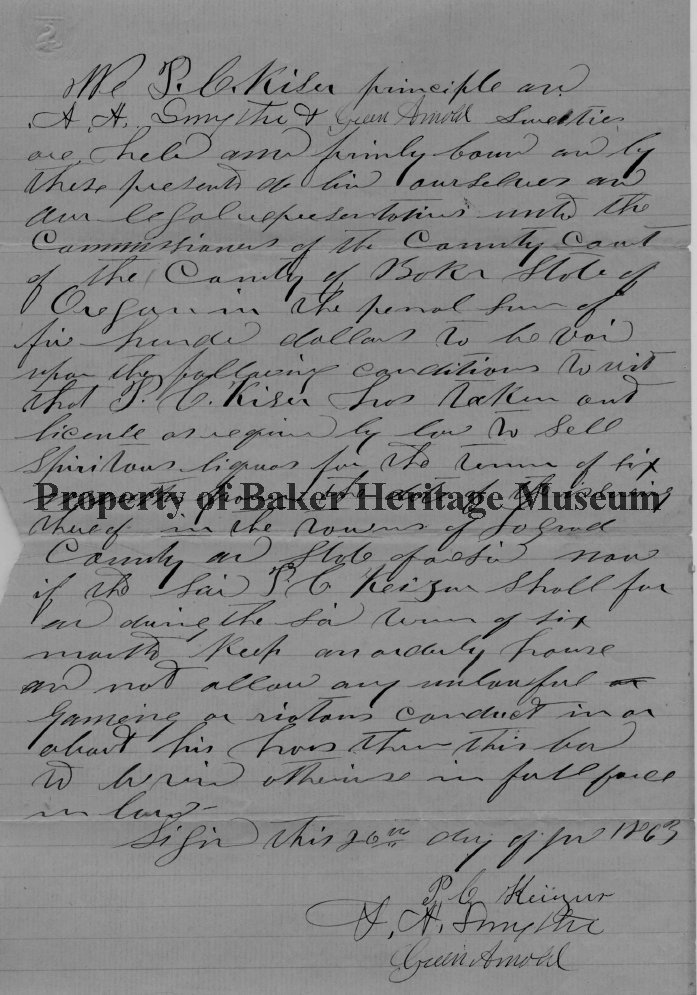 We P. C. Kiser principle an
A. H. Smythe & Green Arnold Sureties
are held and firmly boun an by
these presents do bin ourselves an
our legal representatives unto the
Commissioners of the County Court
of the County of Baker State of
Oregon in the penal sum of
five hundr dollars to be voi
upon the following conditions to wit
that P. C. Kiser has taken out
license as requir by law to Sell
Spiritous liquors for the term of six
Property of Baker Heritage Museum
thereof in the towns of
County an State aforesai now
if the sai P. C Keizur Shall for
an during the sai term of six
month keep an orderly house
an not allow any unlawful or
gameing or riotous conduct in or
about his hous then this bon
to be voi otherwise in full force
in law
Sign this 26th day of 1863
P C Keizur
A. H. Smythe
Green Arnold